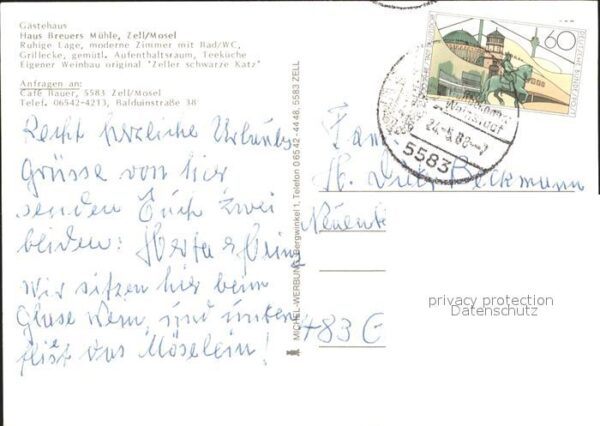 Gästehaus
Haus Breuers Mühle, Zell/Mosel
Ruhige Lage, moderne Zimmer mit Bad/WC,
Grillecke, gemütl. Aufenthaltsraum, Teeküche
Eigener Weinbau original "Zeller schwarze Katz"
Anfragen an:
Café Bauer, 5583 Zell/Mosel
Telef. 06542-4213, Balduinstraße 38
Recht herzliche Urlaubs
Grüsse von hier
senden Euch zwei
beiden: Herta & Heinz
Wir sitzen hier beim
Glase Wein, und unten
fließt das Möselein!
MICHEL-WERBUNG, Bergwinkel 1, Telefon 06542-4448, 5583 ZELL
60
DEUTSCHE BUNDESPOST
24.-5.88--7
5583
Fam.
Beckmann
483 G
privacy protection
Datenschutz